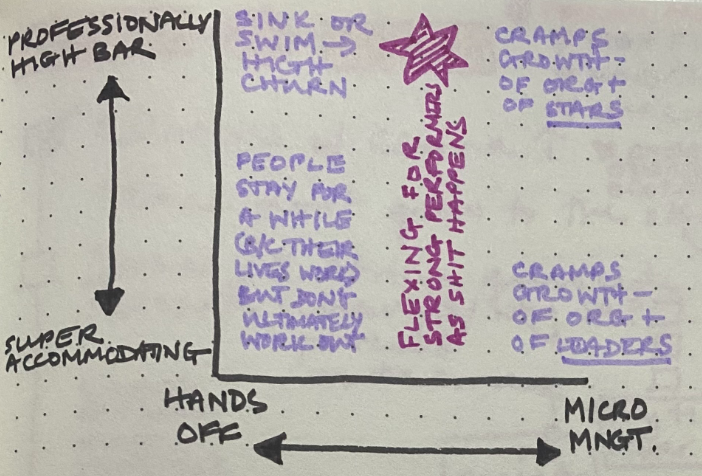 PROFESSIONALLY
HIGH BAR
SUPER
ACCOMMODATING
SINK OR
SWIM →
HIGH
CHURN
PEOPLE
STAY FOR
A WHILE
(B/C THEIR
LIVES WORK)
BUT DON'T
ULTIMATELY
WORK OUT
FLEXING FOR
STRONG PERFORMERS
AS SHIT HAPPENS
CRAMPS
GROWTH -
OF ORG +
OF STARS
CRAMPS
GROWTH -
OF ORG +
OF LEADERS
HANDS
OFF
MICRO
MNGT.